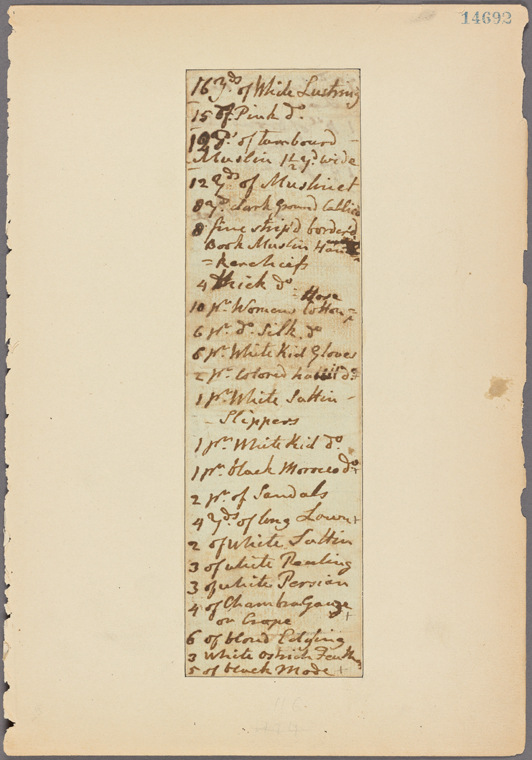 14692
16 Yds. of White Lustring
15 of Pink do.
19 Yds. of tambourd -
Muslin 1 1/2 yd. wide
12 Yds of Muslinet
8 Yds. dark ground Callico
8 fine strip'd border'd
Book Muslin Hand
= kerchiefs
4 thick do
= Hose
10 pr. Womens Cotton =
6 pr. do. Silk do
6 pr. White Kid Gloves
2 pr. Colored do
1 pr. White Sattin -
- Slippers
1 pr. White Kid do.
1 pr. black Morocco do
2 pr. of Sandals
4 Yds. of long Lawn +
2 of White Sattin
3 of white Peeling
3 of white Persian
4 of Chambra Gauze
or Crape +
6 of blond Edging
3 White Ostrich Feathers
5 of black Mode +